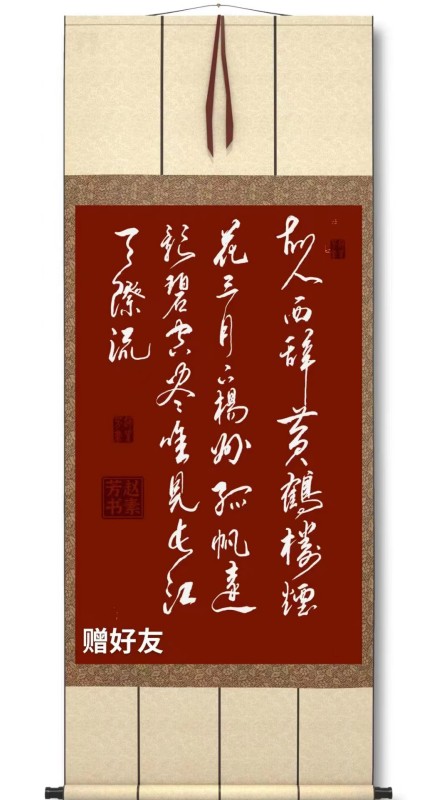 故人西辞黄鶴楼煙
花三月下揚州孤帆遠
影碧空尽唯見长江
天際流
赵素芳书
赠好友